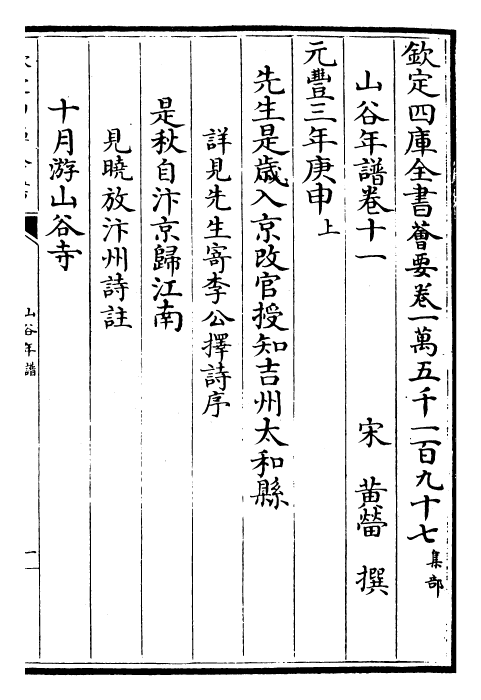 欽定四庫全書薈要卷一萬五千一百九十七 集部
山谷年譜卷十一 宋 黃㽦 撰
元豐三年庚申上
先生是歲入京改官授知吉州太和縣
詳見先生寄李公擇詩序
是秋自汴京歸江南
見曉放汴州詩註
十月游山谷寺
山谷年譜
一